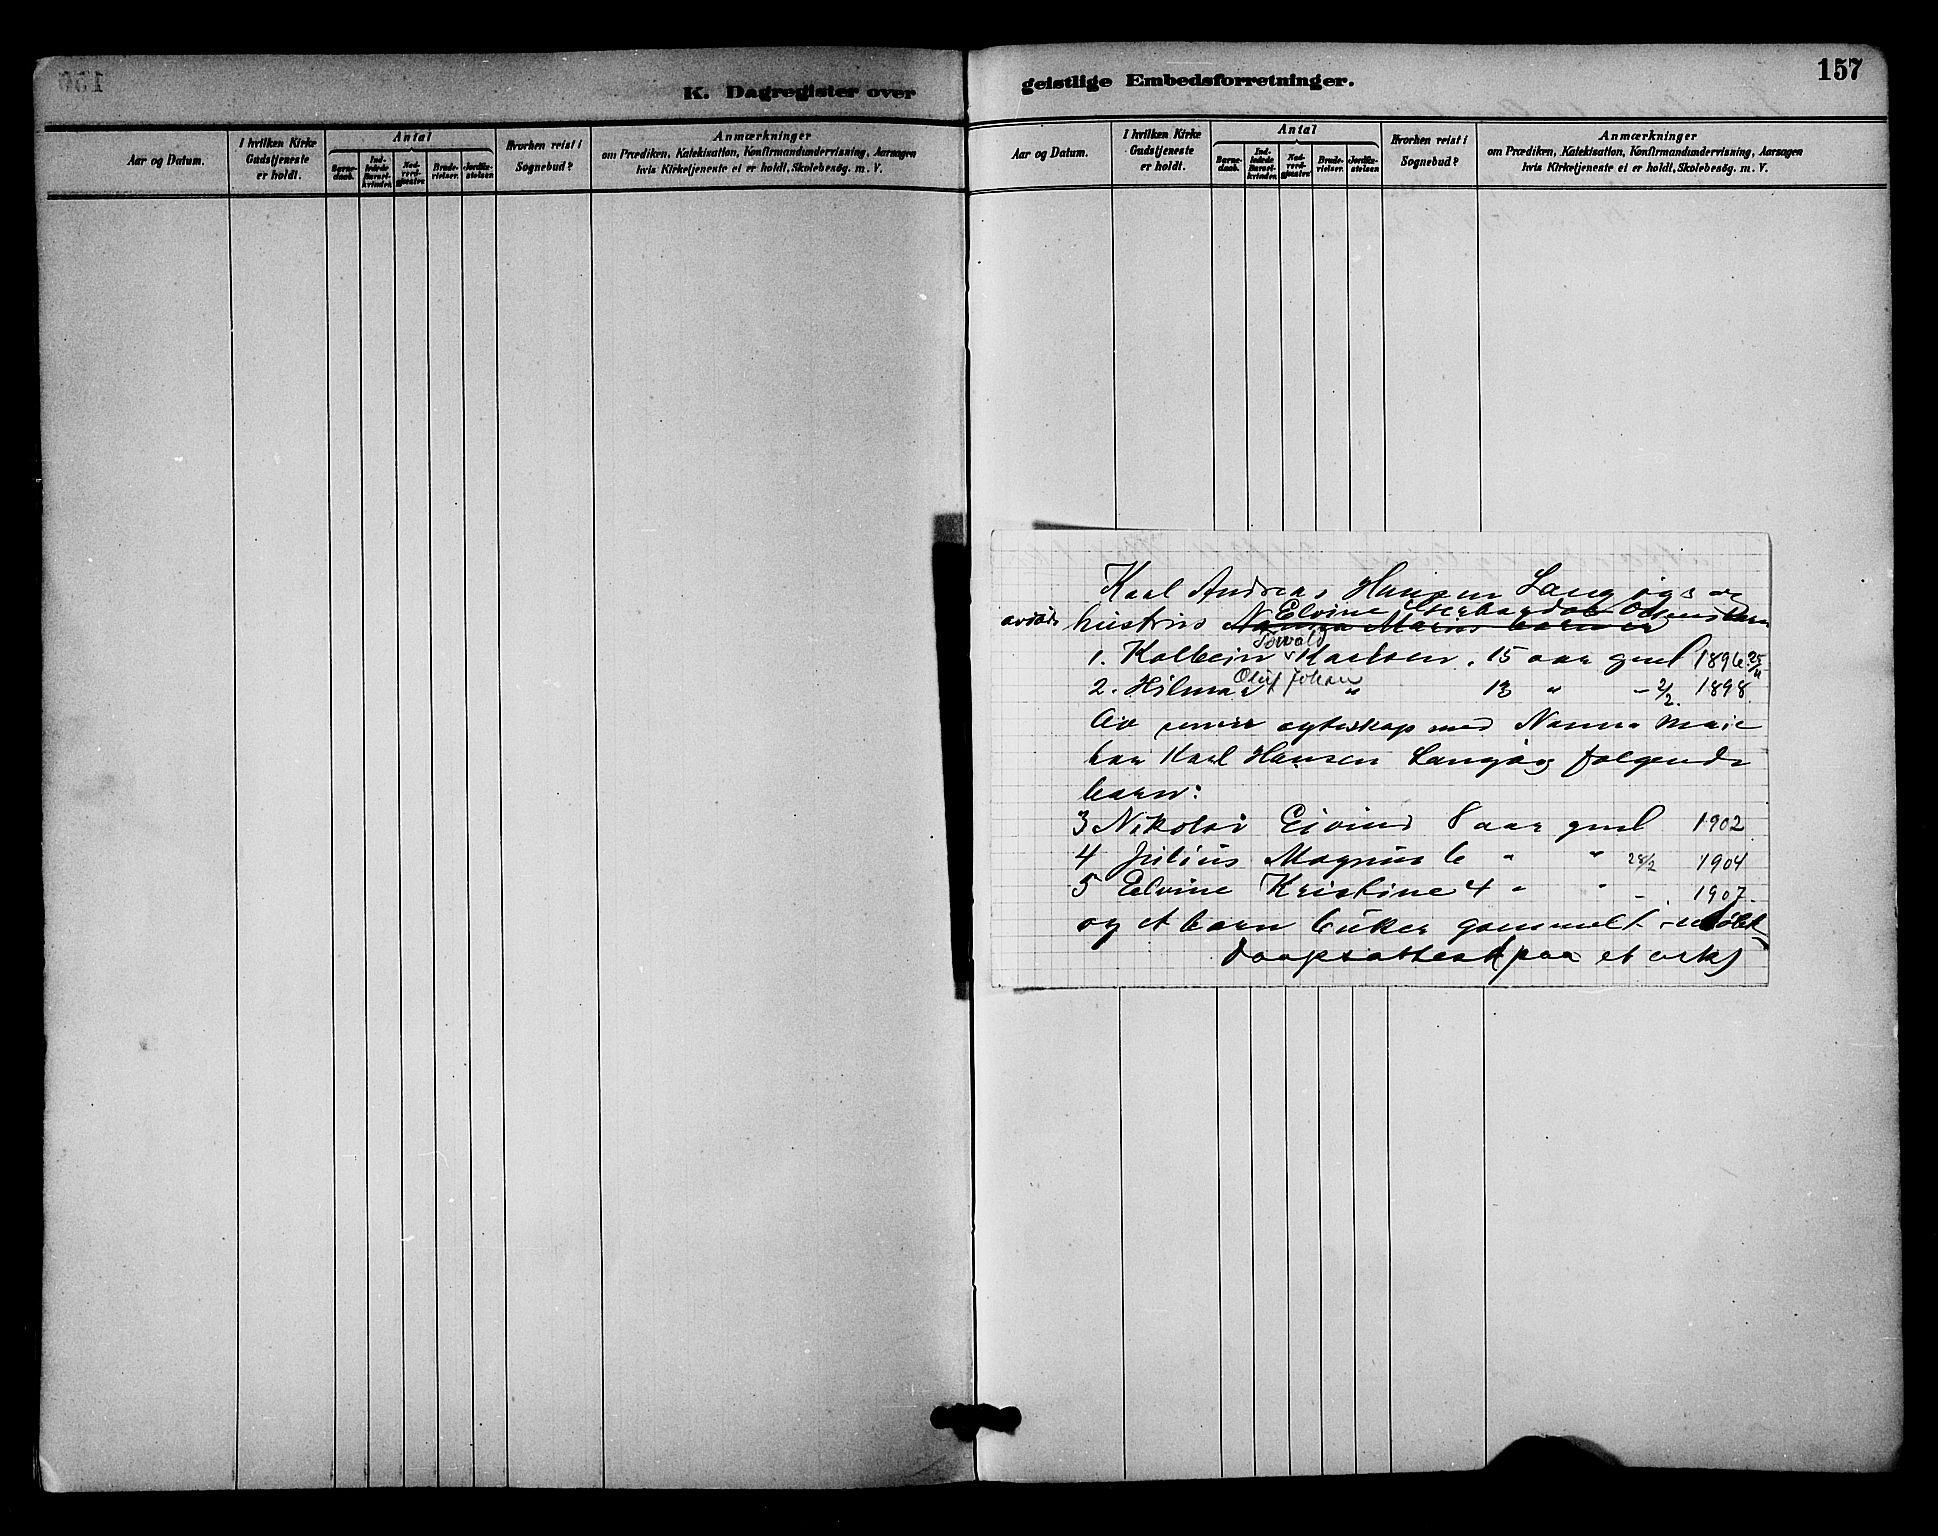 K. Dagregister over
Aar og Datum.
I hvilken Kirke
Gudstjeneste
er holdt.
Antal
Barne-
daab.
Ind-
ledede
Barsel-
kvinder.
Nad-
verd-
gjæster.
Brude-
vielser.
Jordfæ-
stelser.
Hvorhen reist i
Sognebud?
Anmærkninger
om Prædiken, Katekisation, Konfirmandundervisning, Aarsagen
hvis Kirketjeneste ei er holdt, Skolebesög. m. V.
geistlige Embedsforretninger.
157
Aar og Datum.
I hvilken Kirke
Gudstjeneste
er holdt.
Antal
Barne-
daab.
Ind-
ledede
Barsel-
kvinder.
Nad-
verd-
gjæster.
Brude-
vielser.
Jordfæ-
stelser.
Hvorhen reist i
Sognebud?
Anmærkninger
om Prædiken, Katekisation, Konfirmandundervisning, Aarsagen
hvis Kirketjeneste ei er holdt, Skolebesög. m. V.
Karl Andreas Hansen Langjøgs og
Elvine Olsens barn
avdøde hustrus Nanna Maries barn er
1. Kolbein Karlsen. 15 aar gml 1896 25/4
2. Hilmar Oluf Johan " 13 " - 2/2. 1898.
egteskap med Nanna Marie
har Karl Hansen Langjøg følgende
barn:
3 Nikolai Eivind 8 aar gml 1902
4 Julius Magnus 6 " " 28/2 1904
5 Elvine Kristine 4 " " - 1907.
og et barn 6 uker gammelt - udøbt
Daapsattest (paa et ark)